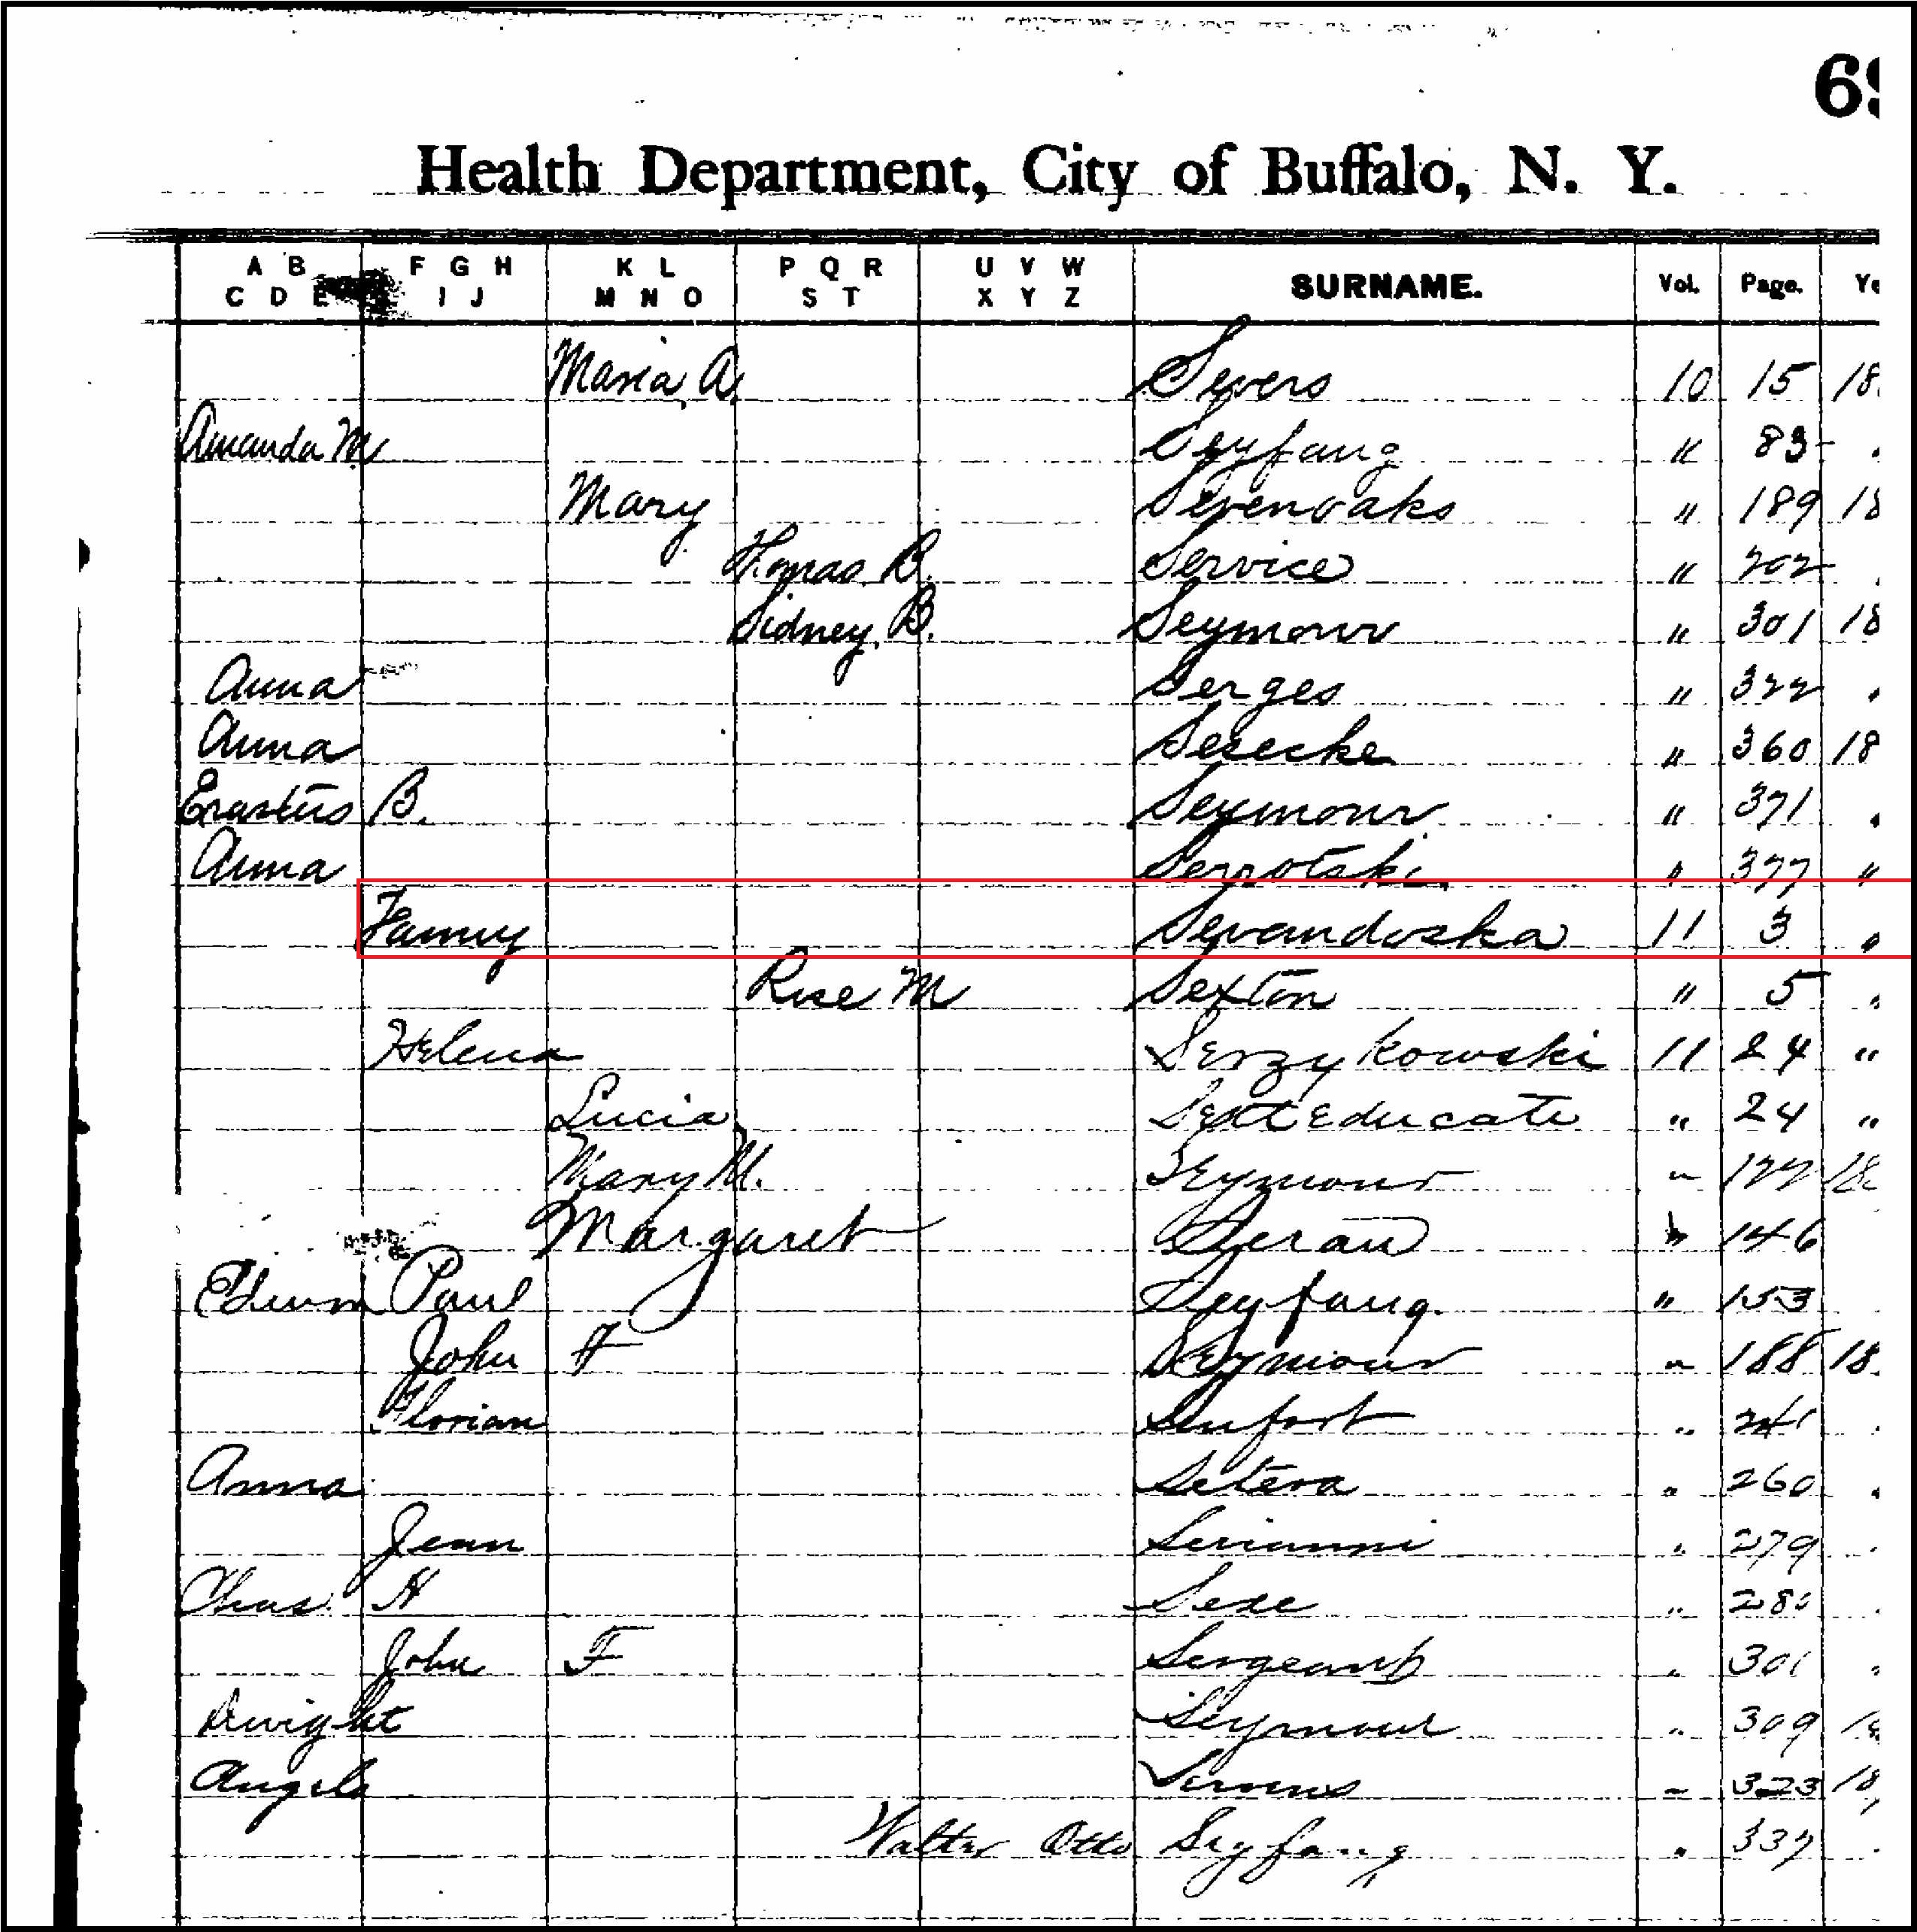 69
Health Department, City of Buffalo, N. Y.
A B C D E F G H I J K L M N O P Q R S T U V W X Y Z SURNAME. Vol. Page.
Maria A. Severs 10 15 18
Amanda M Seyfang " 83
Mary Sevenoaks " 189 18
Thomas B. Service " 202
Sidney B. Seymour " 301 18
Anna Serges " 322
Anna " 360 18
Erastus B. Seymour " 371
Anna " 377 "
Fanny Sevandoska 11 3 "
Rose M Sexton " 5 "
Helena Serzykowski 11 24 "
Lucia " 24 "
Mary M. Seymour " 177 18
Margaret Seran " 146
Edwin Paul Seyfang. " 153
John F Seymour " 188 18
Florian Senfort " 241
Anna Setera " 260
Jenn Serianni " 279
Chas H " 280
John F Sergeant " 301
Dwight Seymour " 309
Angelo " 323 18
Walter Otto Seyfang " 337